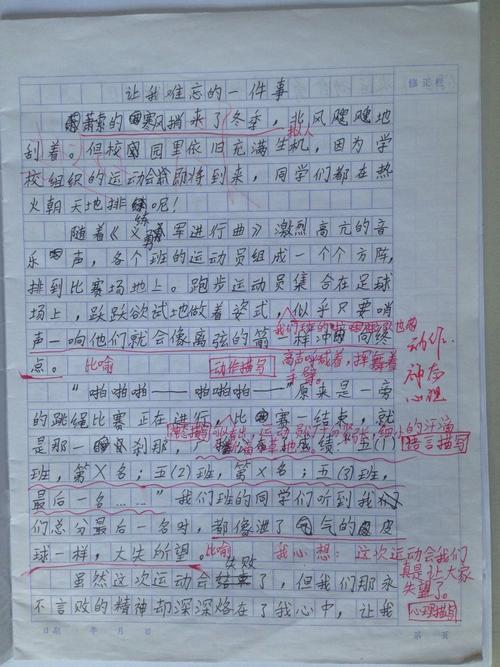 修正栏
让我难忘的一件事
萧索的寒风捎来了冬季，北风飕飕地
拟人
刮着。但校园里依旧充满生机，因为学
校组织的运动会将到来，同学们都在热
火朝天地排练呢！
随着《义勇军进行曲》激烈高亢的音
乐声，各个班的运动员组成一个个方阵，
排到比赛场地上。跑步运动员集合在足球
场上，跃跃欲试地做着姿式，似乎只要哨
声一响他们就会像离弦的箭一样冲向终
我们班的
点。
比喻
动作描写
高声呼喊着，挥舞着
手臂。
动作
神态
心理
“啪啪啪——啪啪啪——”原来是一旁
的跳绳比赛正在进行，比赛一结束，就
是那一刹那，
成绩：五(1)
语言描写
班，第X名；五(2)班，第X名；五(3)班，
最后一名……”我们班的同学们听到我
们总分最后一名时，都像泄了气的皮
球一样，大失所望
比喻
我心想：这次运动会我们
真是让大家
失望了。
失败
虽然这次运动会了，但我们那永
不言败的精神却深深烙在了我心中，让我
心理描写
日期 年 月 日
第 页